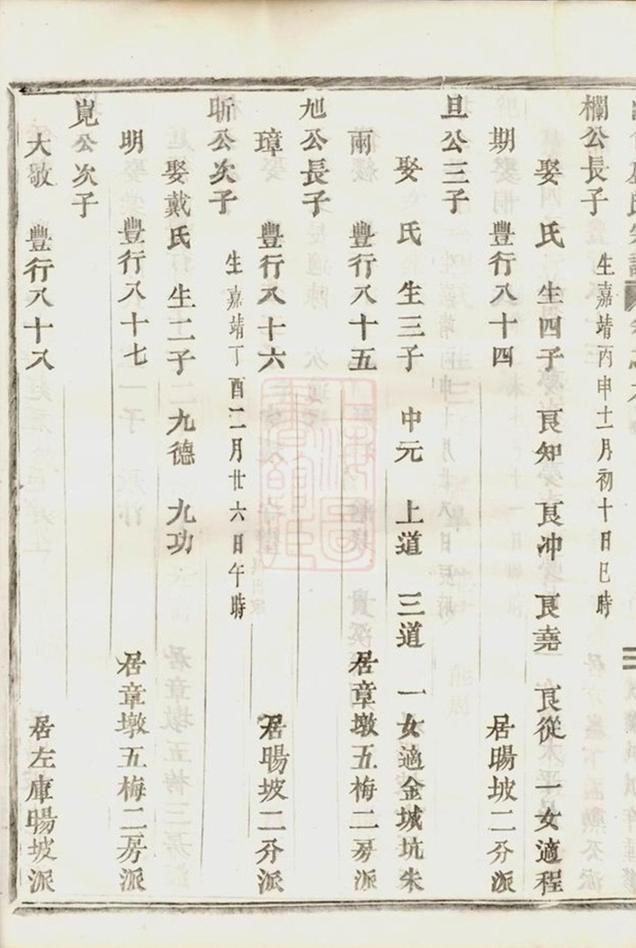 欄公長子
生嘉靖丙申十一月初十日巳時
娶 氏 生四子 良知 良冲 良堯 良從 一女適程
期 豐行八十四 居暘坡二分派
旦公三子
娶 氏 生三子 中元 上道 三道 一女適金城坑朱
兩 豐行八十五 居章墩五梅二房派
旭公長子
璋 豐行八十六 居暘坡二分派
昕公次子
生嘉靖丁酉二月廿六日午時
娶戴氏 生二子 九德 九功
明 豐行八十七 居章墩五梅二房派
崑公次子
大敬 豐行八十八 居左庫暘坡派